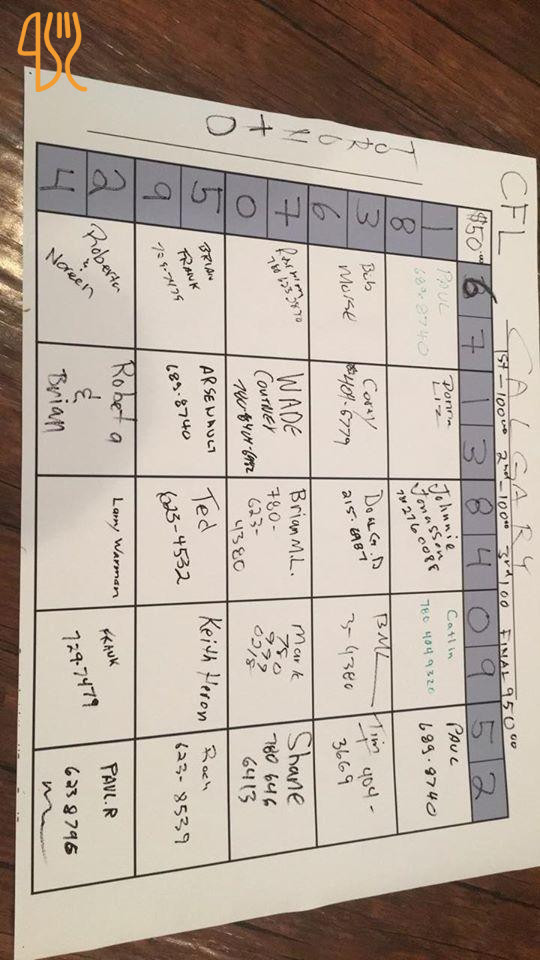 CFL
CALGARY
1st-100.00 2nd-100.00 3rd 100 FINAL 950.00
TORONTO
$50.00 6 7 1 3 8 4 0 9 5 2
1
8
PAUL
689.8740
Donna
Johnnie
Jonasson
Catlin
780 404 9320
PAUL
689.8740
3
6
Bob
Morse
Corey
404.6779
Doug.D
215.6987
BML
3-4380
Tim
404-
3669
7
0
WADE
COURTNEY
Brian ML.
780-
623-
4380
Mark
780
Shane
780 646
6413
5
9
BRIAN
FRANK
729.7479
ARSENAULT
689.8740
Ted
623-4532
Keith Heron
Roch
623-8539
2
4
Roberta
&
Noreen
Roberta
&
Brian
Larry Warman
FRANK
729.7479
PAUL.R
623 8796